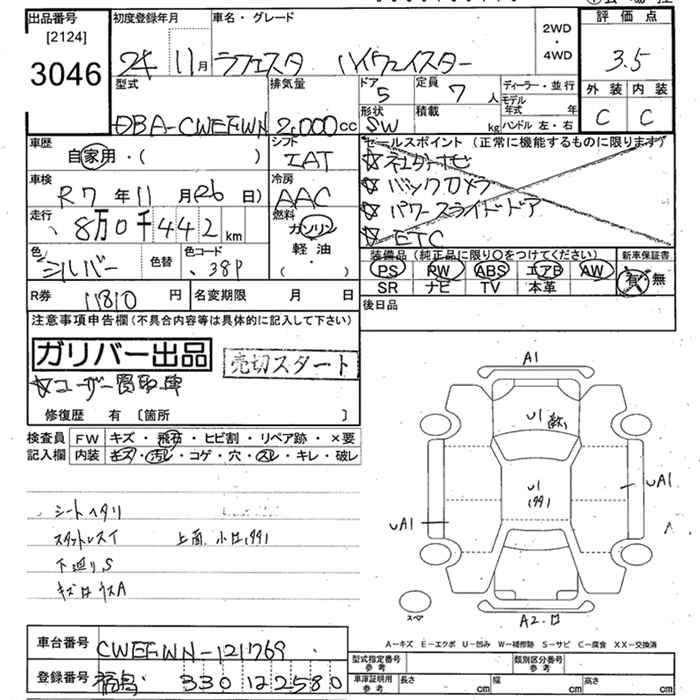 出品番号 初度登録年月 車名・グレード 評価点
[2124]
3046
24 11月 ラフェスタ ハイウェイスター 2WD・4WD 3.5
型式 排気量 ドア 5 定員 7人 ディーラー・並行 外装 内装
モデル年式 年
DBA-CWEFWN 2,000cc 形状 SW 積載 kg ハンドル 左・右 C C
車歴 シフト セールスポイント (正常に機能するものに限ります)
自家用・( ) IAT ☆社外ナビ
車検 冷房 ☆バックカメラ
R7年11月26日) AAC ☆パワースライドドア
走行 燃料 ☆ETC
8万0千442km ガソリン
軽油・( )
色 シルバー 色替 色コード 38P
装備品 (純正品に限り○をつけてください) 新車保証書
PS PW ABS エアB AW 有・無
SR ナビ TV 本革
R券 11810円 名変期限 月 日 後日品
注意事項申告欄(不具合内容等は具体的に記入して下さい)
ガリバー出品 売切スタート
☆ユーザー買取車
修復歴 有〔箇所 〕
検査員 FW キズ・飛石・ヒビ割・リペア跡・×要
記入欄 内装 キズ・汚レ・コゲ・穴・スレ・キレ・破レ
シートヘタリ
スタットレスイ 上面 小凹
下廻りS
A1
U1
U1
UA1
UA1
A2.
スペア
A-キズ E-エクボ U-凹み W-補修跡 S-サビ C-腐食 XX-交換済
車台番号 CWEFWN-121769
型式指定番号 参考 類別区分番号 参考
登録番号 福島 330 122580
車庫証明用 参考 長さ cm 幅 cm 高さ cm